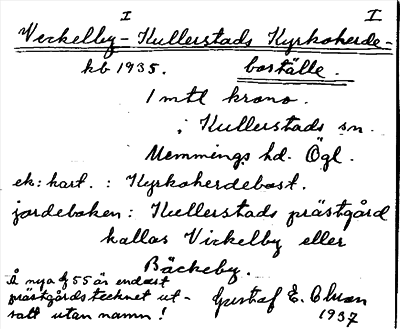 I I
Vickelby - Kullerstads Kyrkoherde-
kb 1935. boställe.
1 mtl krono.
i Kullerstads sn.
Memmings hd. Ögl.
ek: kart. : Kyrkoherdebost.
jordeboken: Kullerstads prästgård
kallas Vickelby eller
Bäckeby.
Å nya bl 55 är endast
prästgårdstecknet ut-
satt utan namn!
Gustaf E.
1937